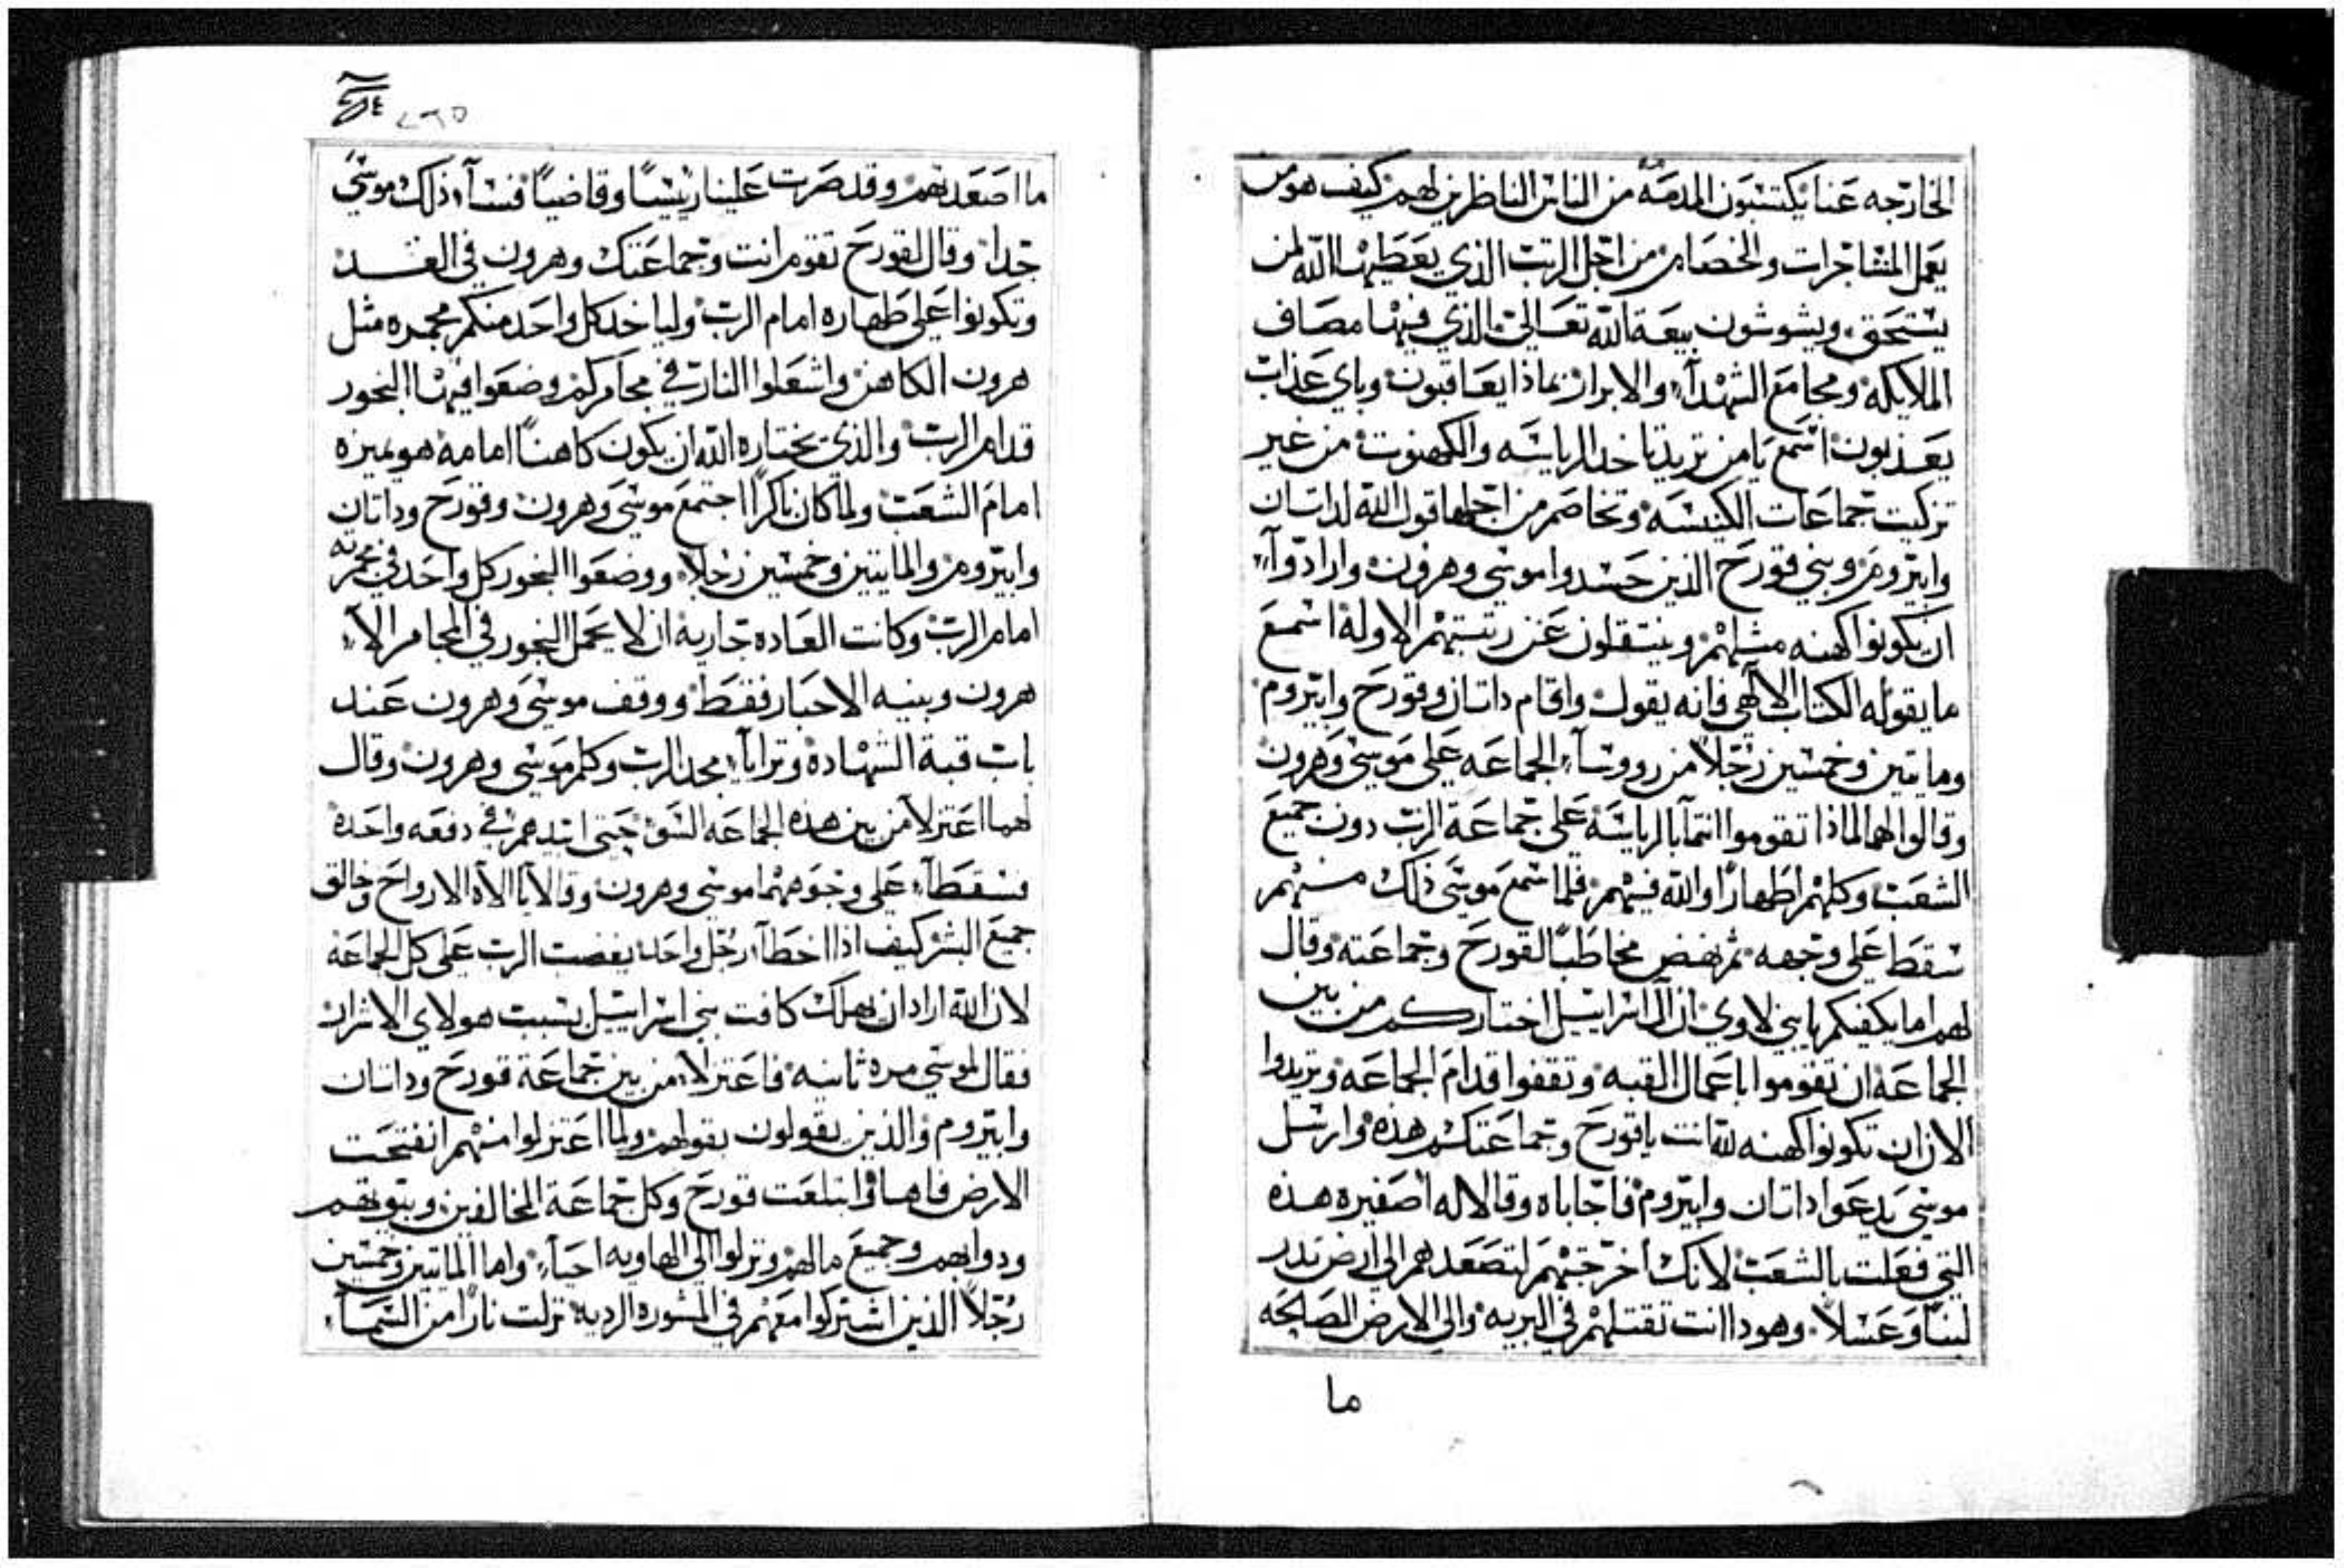 الخارجه عنا يكتسبون المدمه من الناس الناظرين لهم كيف هو من
يعمل المشاجرات والخصام من اجل الرتب الذي يعطيها الله لمن
يستحق ويشوشون بيعة الله تعالي الذي فيها مصاف
الملايكه ومجامع الشهدآء والابرار بماذا يعاقبون وباي عذاب
يعذبون اسمع يا من تريد تاخد الرياسه والكهنوت من غير
تزكيت جماعات الكنيسه وتخاصم من اجلها قول الله لداتان
وابيروم وبني قورح الذين حسدوا موسي وهرون وارادوآ
ان يكونوا كهنه مثلهم وينتقلون عن رتبتهم الاوله اسمع
ما يقوله الكتاب الالهي فانه يقول واقام داتان وقورح وابيروم
ومايتين وخمسين رجلاً من رووسآء الجماعه علي موسي وهرون
وقالوا لهما لماذا تقوموا انتمآ بالرياسه علي جماعة الرب دون جميع
الشعب وكلهم اطهاراً والله فيهم فلما سمع موسي ذلك منهم
سقط علي وجهه ثم نهض مخاطباً لقورح وجماعته وقال
لهم اما يكفيكم يا بني لاوي ان اله اسراييل اختاركم من بين
الجماعه ان تقوموا باعمال القبه وتقفوا قدام الجماعه وتريدوا
الان ان تكونوا كهنه لله انت يا قورح وجماعتك هذه وارسل
موسي يدعوا داتان وابيروم فاجاباه وقالا له اصغيره هذه
التي فعلت بالشعب لانك اخرجتهم لتصعدهم الي ارض تدر
لبناً وعسلاً وهودا انت تقتلهم في البريه والي الارض الصالحه
ما
٢٦٥
ما اصعدتهم وقد صرت علينا رييساً وقاضياً فسآء ذلك موسي
جداً وقال لقورح تقوم انت وجماعتك وهرون في الغد
وتكونوا علي طهاره امام الرب ولياخد كل واحد منكم مجمره مثل
هرون الكاهن واشعلوا النار في مجامركم وضعوا فيها البخور
قدام الرب والذي يختاره الله ان يكون كاهناً امامه هو يميزه
امام الشعب ولما كان باكراً اجتمع موسي وهرون وقورح وداتان
وابيروم والمايتين وخمسين رجلاً ووضعوا البخور كل واحد في مجمرته
امام الرب وكانت العاده جاريه ان لا يحمل البخور في المجامر الآ
هرون وبنيه الاحبار فقط ووقف موسي وهرون عند
باب قبة الشهاده وترايآ مجد الرب وكلم موسي وهرون وقال
لهما اعتزلا من بين هذه الجماعه السو حتي ابيدهم في دفعه واحده
فسقطآ علي وجوههما موسي وهرون وقالا يا الاه الارواح وخالق
جميع البشر كيف اذا اخطآ رجل واحد يغضب الرب علي كل الجماعه
لان الله اراد ان يهلك كافت بني اسراييل بسبب هولاي الاشرار
فقال لموسي مره ثانيه فاعتزلا من بين جماعة قورح وداتان
وابيروم والذين يقولون بقولهم ولما اعتزلوا منهم انفتحت
الارض فاها وابتلعت قورح وكل جماعة المخالفين وبيوتهم
ودوابهم وجميع مالهم ونزلوا الي الهاويه احيآء واما المايتين وخمسين
رجلاً الذين اشتركوا معهم في المشوره الرديه نزلت ناراً من السمآء